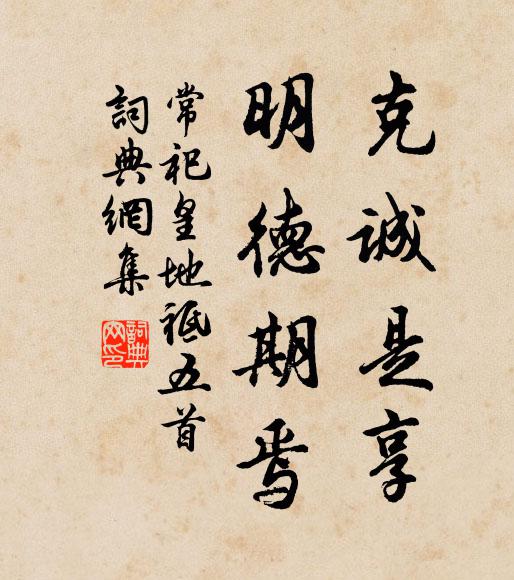 克誠是享
明德期焉
常祀皇地祗五首
詞典網集
詞典
网印